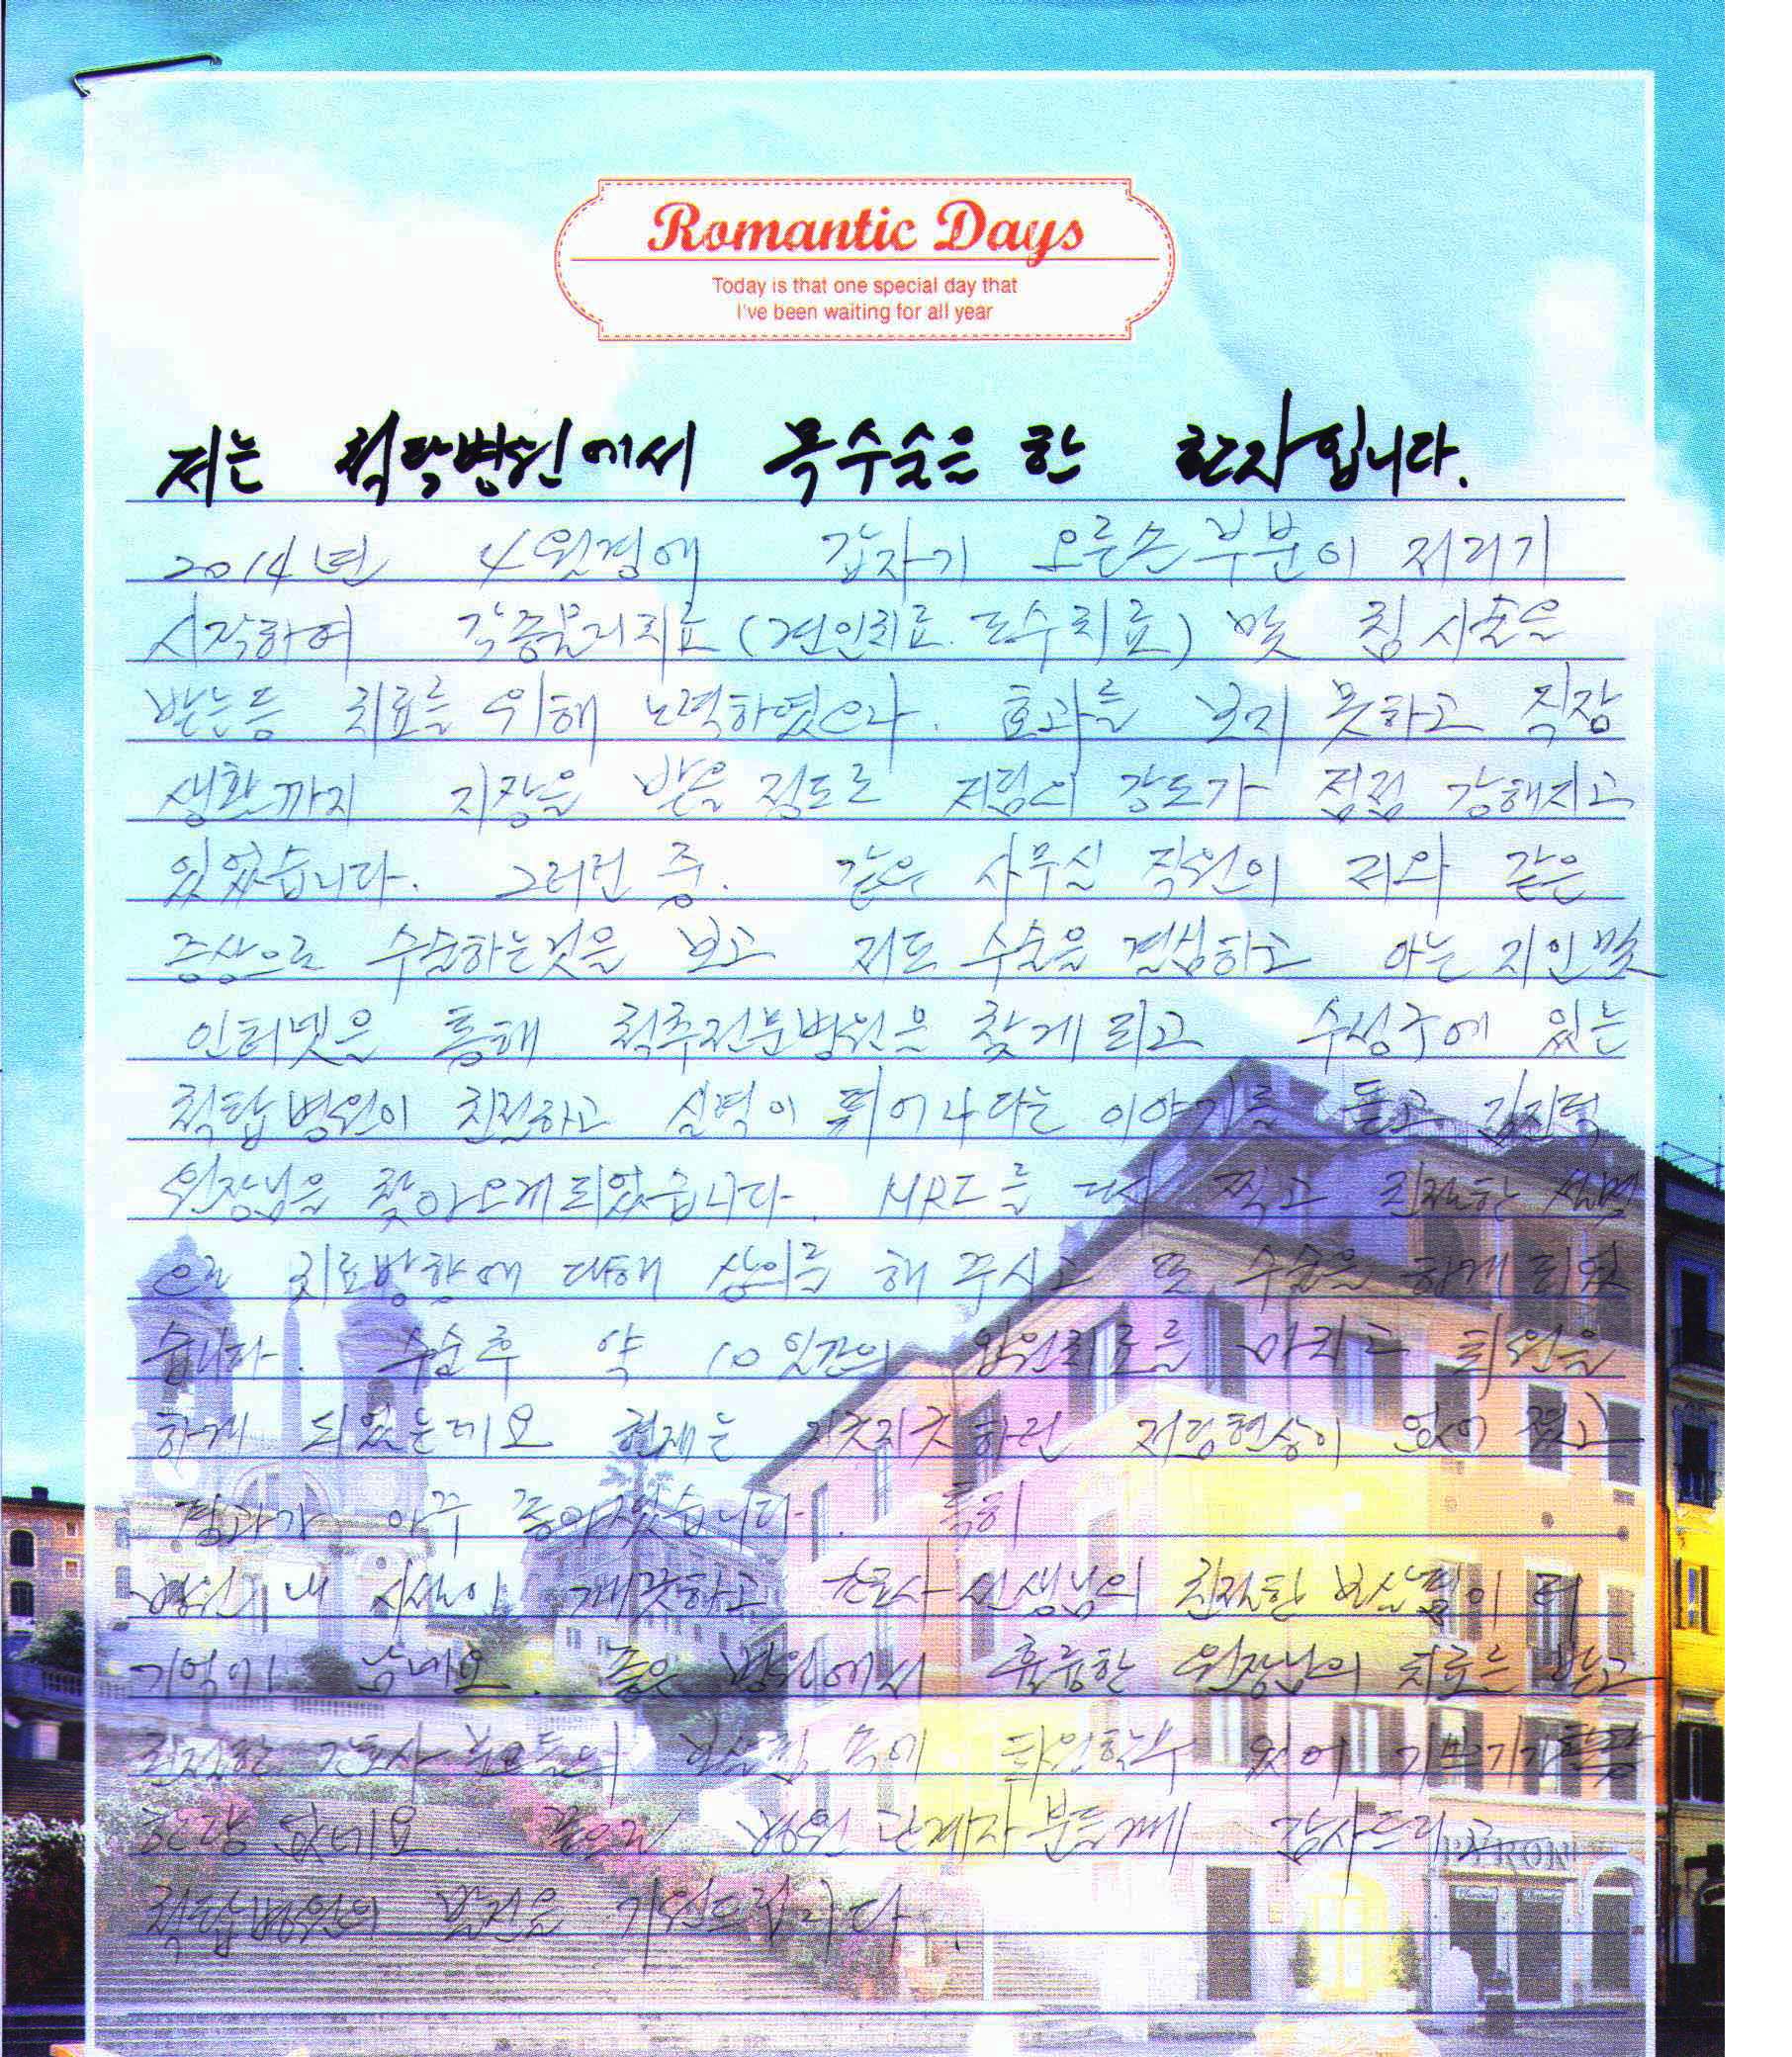 Romantic Days
Today is that one special day that
I've been waiting for all year
저는 척탑병원에서 목수술은 한 환자입니다.
2014년 4월경에 갑자기 오른손 부분이 저리기
시작하여 각종물리치료(견인치료. 도수치료) 및 침 시술을
받는등 치료를 위해 노력하였으나. 효과를 보지 못하고 직장
생활까지 지장을 받을 정도로 저림의 강도가 점점 강해지고
있었습니다. 그러던 중. 같은 사무실 직원의 저와 같은
증상으로 수술하는것을 보고 저도 수술을 결심하고 아는 지인및
인터넷을 통해 척추전문병원을 찾게 되고 수성구에 있는
척탑병원이 친절하고 실력이 뛰어나다는 이야기를 듣고 김진덕
원장님을 찾아오게되었습니다. MRI를 다시 찍고 친절한 설명
으로 치료방향에 대해 상의를 해 주시고 또 수술을 하게 되었
습니다. 수술후 약 10일간의 입원치료를 마치고 퇴원을
하게 되었는데요 현재는 지긋지긋하던 저림현상이 없어 졌고
결과가 아주 좋아졌습니다. 특히
병원 내 시설이 깨끗하고 간호사 선생님의 친절한 보살핌이 더
기억에 남네요. 좋은 병원에서 훌륭한 원장님의 치료를 받고
친절한 간호사 분들의 보살핌 속에 퇴원할수 있어 기쁘기가
한량 없네요 병원 관계자분들께 감사드리고
척탑병원의 발전을 기원드립니다.